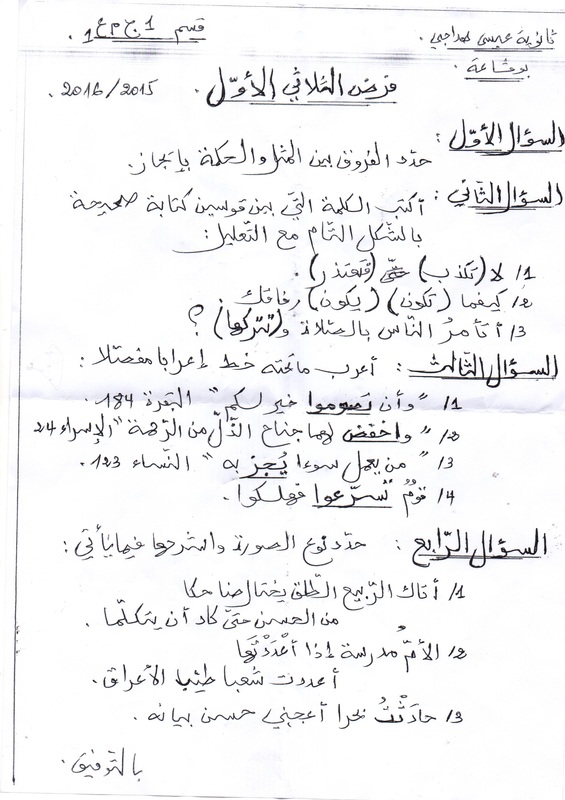 ثانوية عيسى هداجي. قسم 1 ج م ع 1.
بوضاعة.
فرض الثلاثي الأوّل. 2016/2015.
السؤال الأوّل: حدّد الفروق بين المثل والحكمة بإيجاز.
السؤال الثّاني: أكتب الكلمة التي بين قوسين كتابة صحيحة
بالشّكل التّام مع التّعليل:
1/ لا (تكذب) (فتعتذر).
2/ كيفما (تكون) (يكون) رفاقك.
3/ أتأمرُ النّاس بالصّلاة و(تتركها)؟
السؤال الثّالث: أعرب ما تحته خط إعرابا مفصّلا:
1/ "وأن تصوموا خير لكم" البقرة 184.
2/ "واخفض لهما جناح الذّلّ من الرّحمة" الإسراء 24
3/ "من يعمل سوءا يُجز به" النّساء 123.
4/ قومٌ تسرّعوا فهلكوا.
السؤال الرّابع: حدّد نوع الصورة واشرحها فيما يأتي:
1/ أتاك الرّبيع الطّلق يختال ضاحكا
من الحسن حتّى كاد أن يتكلّما.
2/ الأمُّ مدرسة إذا أعْدَدْتَها
أعددت شعبا طيّب الأعراق.
3/ حادَثْتُ بحرا أعجبني حسن بيانه.
بالتّوفيق.